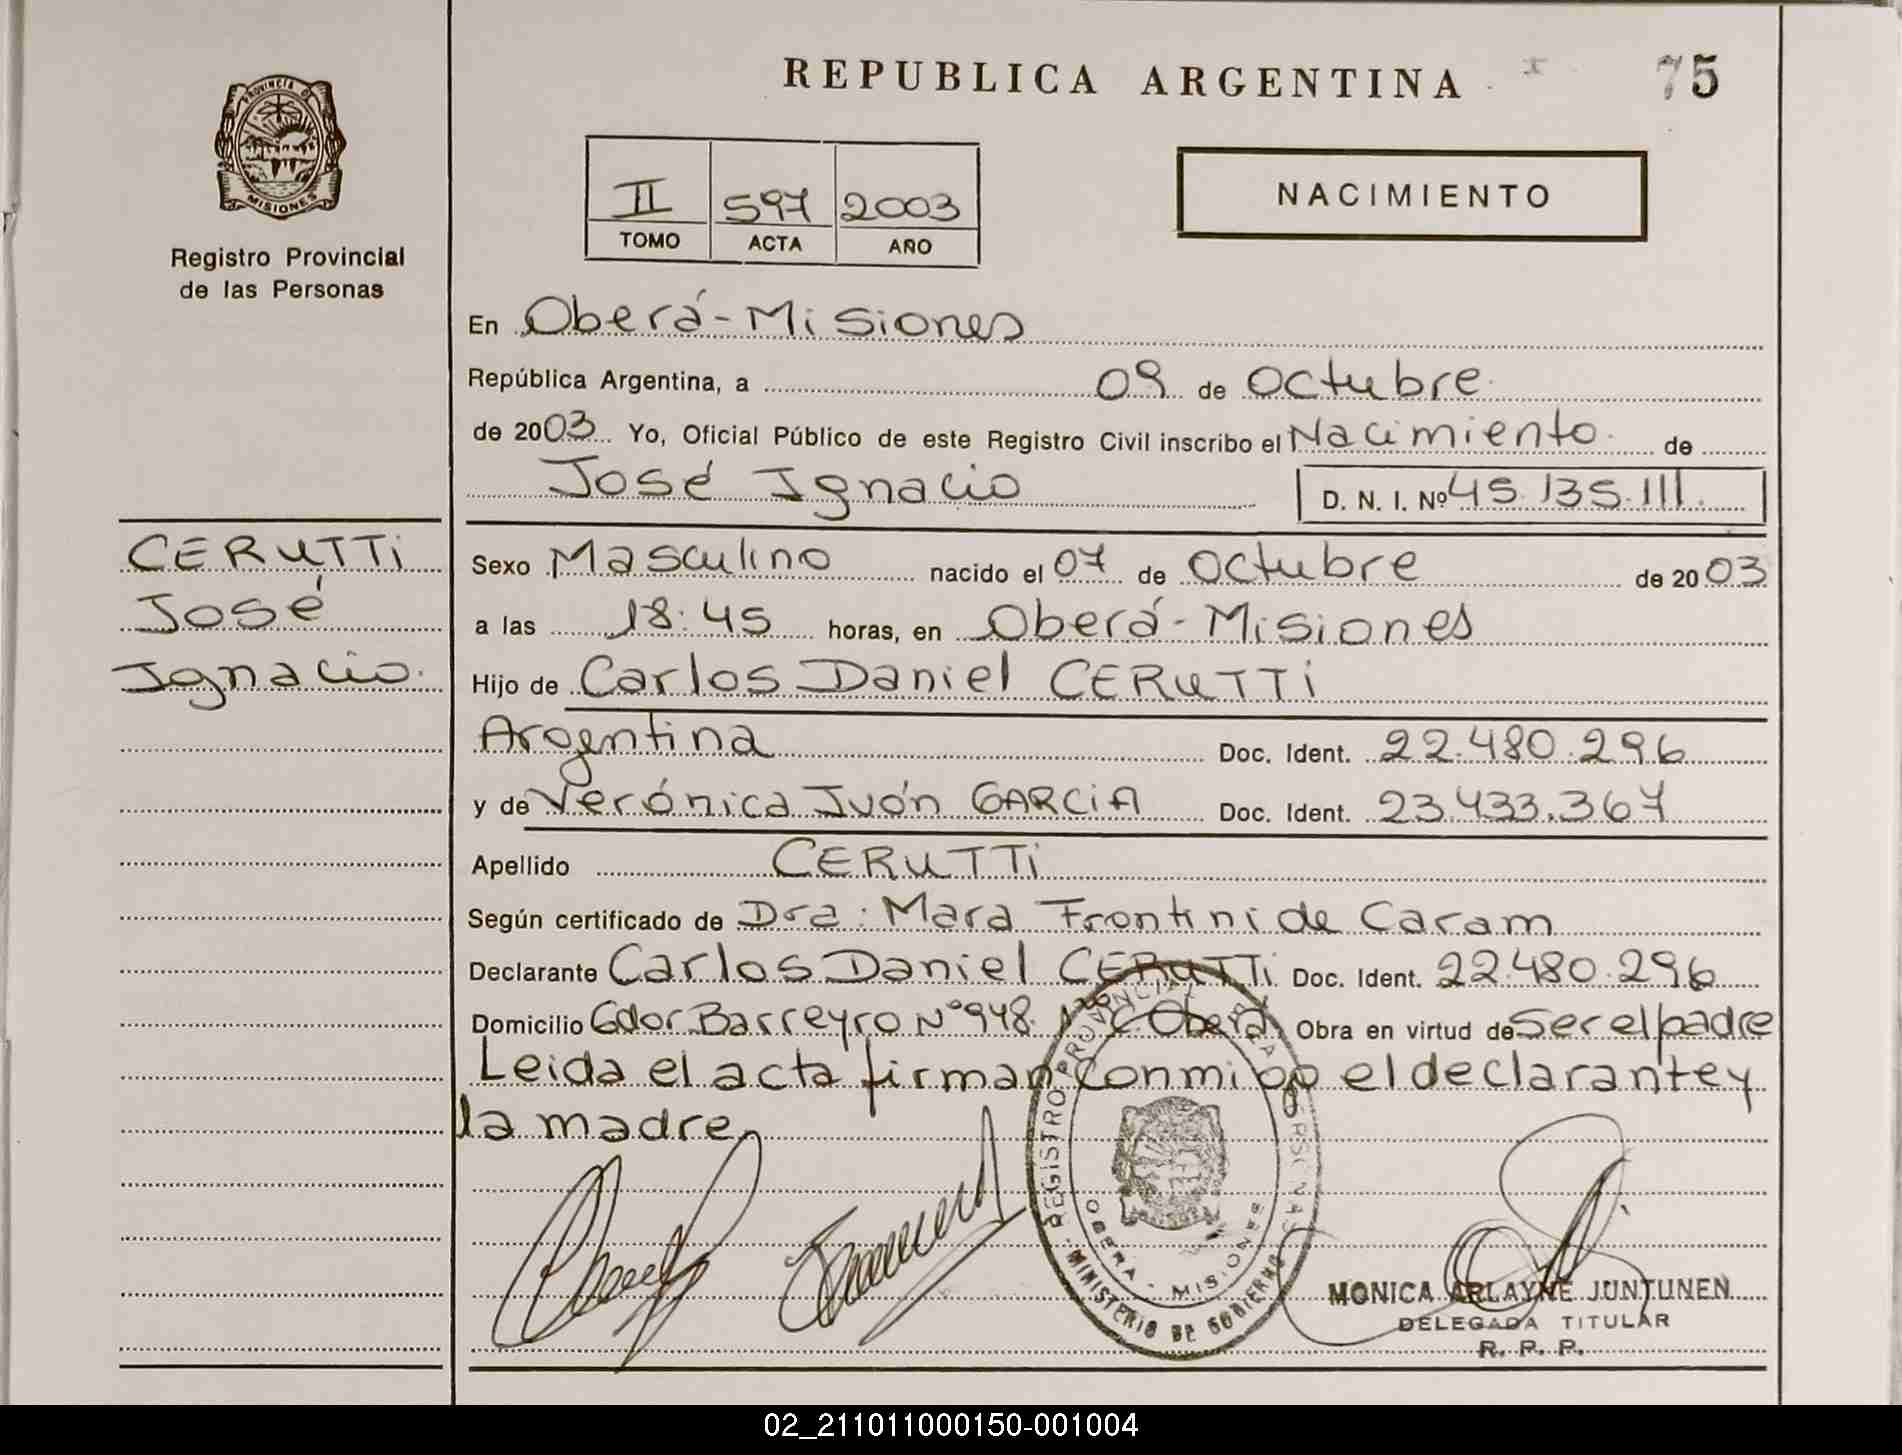 REPUBLICA ARGENTINA
75
PROVINCIA DE
MISIONES
Registro Provincial
de las Personas
II 597 2003
TOMO ACTA AÑO
NACIMIENTO
En Oberá-Misiones
República Argentina, a 09 de Octubre
de 2003 Yo, Oficial Público de este Registro Civil inscribo el Nacimiento de
José Ignacio D. N. I. Nº 45.135.111.
CERUTTi
José
Ignacio.
Sexo Masculino nacido el 07 de Octubre de 2003
a las 18:45 horas, en Oberá-Misiones
Hijo de Carlos Daniel CERUTTi
Argentina Doc. Ident. 22.480.296
y de Verónica Ivón GARCiA Doc. Ident. 23.433.367
Apellido CERUTTi
Según certificado de Dra: Mara Frontini de Caram
Declarante Carlos Daniel CERUTTi Doc. Ident. 22.480.296
Domicilio Gdor Barreyro N°948 Oberá Obra en virtud de Ser el padre
Leida el acta firman conmigo el declarante y
la madre
REGISTRO PROVINCIAL DE LAS PERSONAS
OBERA - MISIONES
MINISTERIO DE GOBIERNO
MONICA ARLAYNE JUNTUNEN
DELEGADA TITULAR
R. P. P.
02_211011000150-001004